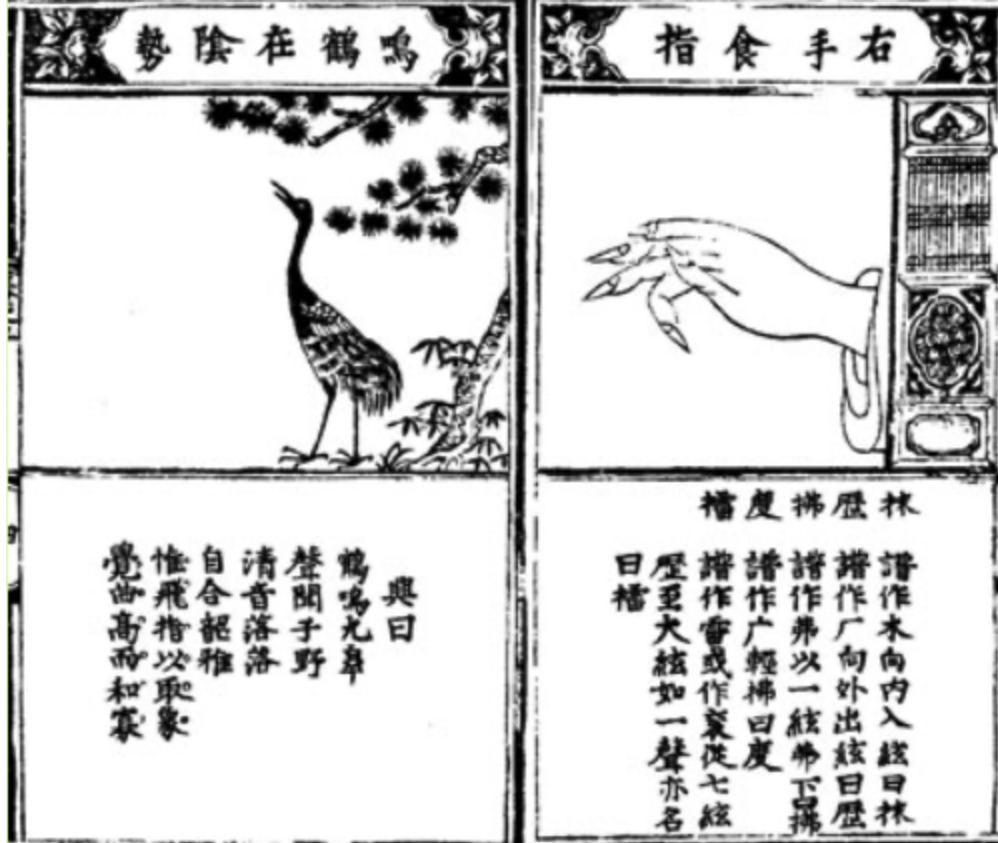 右手食指
抹 譜作木向内入絃曰抹
歷 譜作厂向外出絃曰歷
拂 譜作弗以一絃弗下曰拂
度 譜作广輕拂曰度
擂 譜作雷或作衮從七絃
歷至大絃如一聲亦名
曰擂
鳴鶴在隂勢
興曰
鶴鳴九皋
聲聞于野
清音落落
自合韶雅
惟飛指以取象
覺曲高而和寡